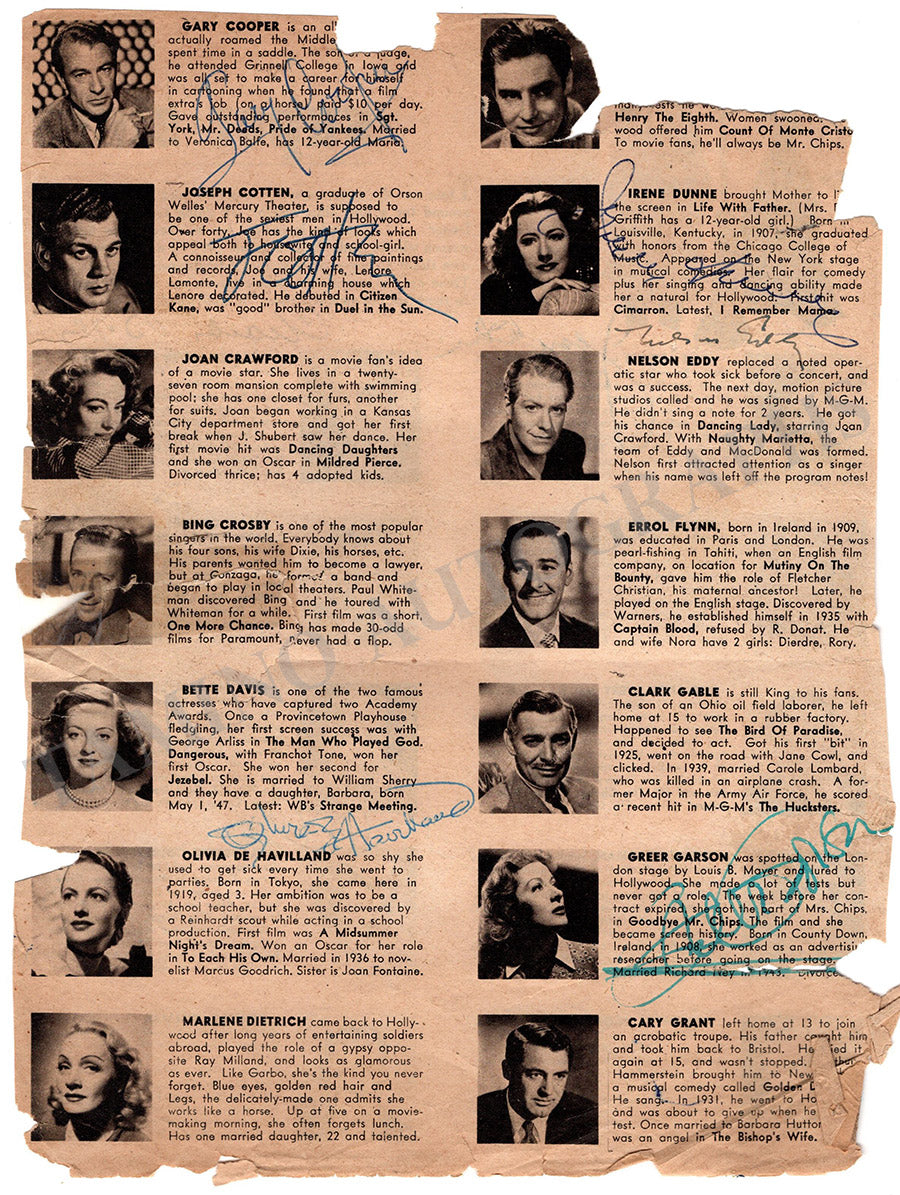 GARY COOPER is an al
actually roamed the Middle
spent time in a saddle. The son of a judge,
he attended Grinnell College in Iowa and
was all set to make a career for himself
in cartooning when he found that a film
extra's job (on a horse) paid $10 per day.
Gave outstanding performances in Sgt.
York, Mr. Deeds, Pride of Yankees. Married
to Veronica Balfe, has 12-year-old Maria.
Gary Cooper
JOSEPH COTTEN, a graduate of Orson
Welles' Mercury Theater, is supposed to
be one of the sexiest men in Hollywood.
Over forty, he has the kind of looks which
appeal both to housewife and school-girl.
A connoisseur and collector of fine paintings
and records, he and his wife, Lenore
Lamonte, live in a charming house which
Lenore decorated. He debuted in Citizen
Kane, was "good" brother in Duel in the Sun.
J Cotten
JOAN CRAWFORD is a movie fan's idea
of a movie star. She lives in a twenty-
seven room mansion complete with swimming
pool; she has one closet for furs, another
for suits. Joan began working in a Kansas
City department store and got her first
break when J. Shubert saw her dance. Her
first movie hit was Dancing Daughters
and she won an Oscar in Mildred Pierce.
Divorced thrice; has 4 adopted kids.
BING CROSBY is one of the most popular
singers in the world. Everybody knows about
his four sons, his wife Dixie, his horses, etc.
His parents wanted him to become a lawyer,
but at Gonzaga, he formed a band and
began to play in local theaters. Paul White-
man discovered Bing and he toured with
Whiteman for a while. First film was a short,
One More Chance. Bing has made 30-odd
films for Paramount, never had a flop.
BETTE DAVIS is one of the two famous
actresses who have captured two Academy
Awards. Once a Provincetown Playhouse
fledgling, her first screen success was with
George Arliss in The Man Who Played God.
Dangerous, with Franchot Tone, won her
first Oscar. She won her second for
Jezebel. She is married to William Sherry
and they have a daughter, Barbara, born
May 1, '47. Latest: WB's Strange Meeting.
Olivia de Havilland
OLIVIA DE HAVILLAND was so shy she
used to get sick every time she went to
parties. Born in Tokyo, she came here in
1919, aged 3. Her ambition was to be a
school teacher, but she was discovered by
a Reinhardt scout while acting in a school
production. First film was A Midsummer
Night's Dream. Won an Oscar for her role
in To Each His Own. Married in 1936 to nov-
elist Marcus Goodrich. Sister is Joan Fontaine.
MARLENE DIETRICH came back to Holly-
wood after long years of entertaining soldiers
abroad, played the role of a gypsy oppo-
site Ray Milland, and looks as glamorous
as ever. Like Garbo, she's the kind you never
forget. Blue eyes, golden red hair and
Legs, the delicately-made one admits she
works like a horse. Up at five on a movie-
making morning, she often forgets lunch.
Has one married daughter, 22 and talented.
Henry The Eighth. Women swooned.
wood offered him Count Of Monte Cristo
To movie fans, he'll always be Mr. Chips.
IRENE DUNNE brought Mother to li
the screen in Life With Father. (Mrs.
Griffith has a 12-year-old girl.) Born in
Louisville, Kentucky, in 1907, she graduated
with honors from the Chicago College of
Music. Appeared on the New York stage
in musical comedies. Her flair for comedy
plus her singing and dancing ability made
her a natural for Hollywood. First hit was
Cimarron. Latest, I Remember Mama.
Irene Dunne
Nelson Eddy
NELSON EDDY replaced a noted oper-
atic star who took sick before a concert, and
was a success. The next day, motion picture
studios called and he was signed by M-G-M.
He didn't sing a note for 2 years. He got
his chance in Dancing Lady, starring Joan
Crawford. With Naughty Marietta, the
team of Eddy and MacDonald was formed.
Nelson first attracted attention as a singer
when his name was left off the program notes!
ERROL FLYNN, born in Ireland in 1909,
was educated in Paris and London. He was
pearl-fishing in Tahiti, when an English film
company, on location for Mutiny On The
Bounty, gave him the role of Fletcher
Christian, his maternal ancestor! Later, he
played on the English stage. Discovered by
Warners, he established himself in 1935 with
Captain Blood, refused by R. Donat. He
and wife Nora have 2 girls: Dierdre, Rory.
CLARK GABLE is still King to his fans.
The son of an Ohio oil field laborer, he left
home at 15 to work in a rubber factory.
Happened to see The Bird Of Paradise,
and decided to act. Got his first "bit" in
1925, went on the road with Jane Cowl, and
clicked. In 1939, married Carole Lombard,
who was killed in an airplane crash. A for-
mer Major in the Army Air Force, he scored
a recent hit in M-G-M's The Hucksters.
GREER GARSON was spotted on the Lon-
don stage by Louis B. Mayer and lured to
Hollywood. She made a lot of tests but
never got a role. The week before her
contract expired she got the part of Mrs. Chips,
in Goodbye Mr. Chips. The film and she
became screen history. Born in County Down,
Ireland, in 1908, she worked as an advertising
researcher before going on the stage.
Married Richard Ney in 1943. Divorced
CARY GRANT left home at 13 to join
an acrobatic troupe. His father caught him
and took him back to Bristol. He
again at 15, and wasn't stopped.
Hammerstein brought him to New
a musical comedy called Golden
He sang. In 1931, he went to Ho
and was about to give up when he
test. Once married to Barbara Hutton
was an angel in The Bishop's Wife.
TAMINO AUTOGRAPHS